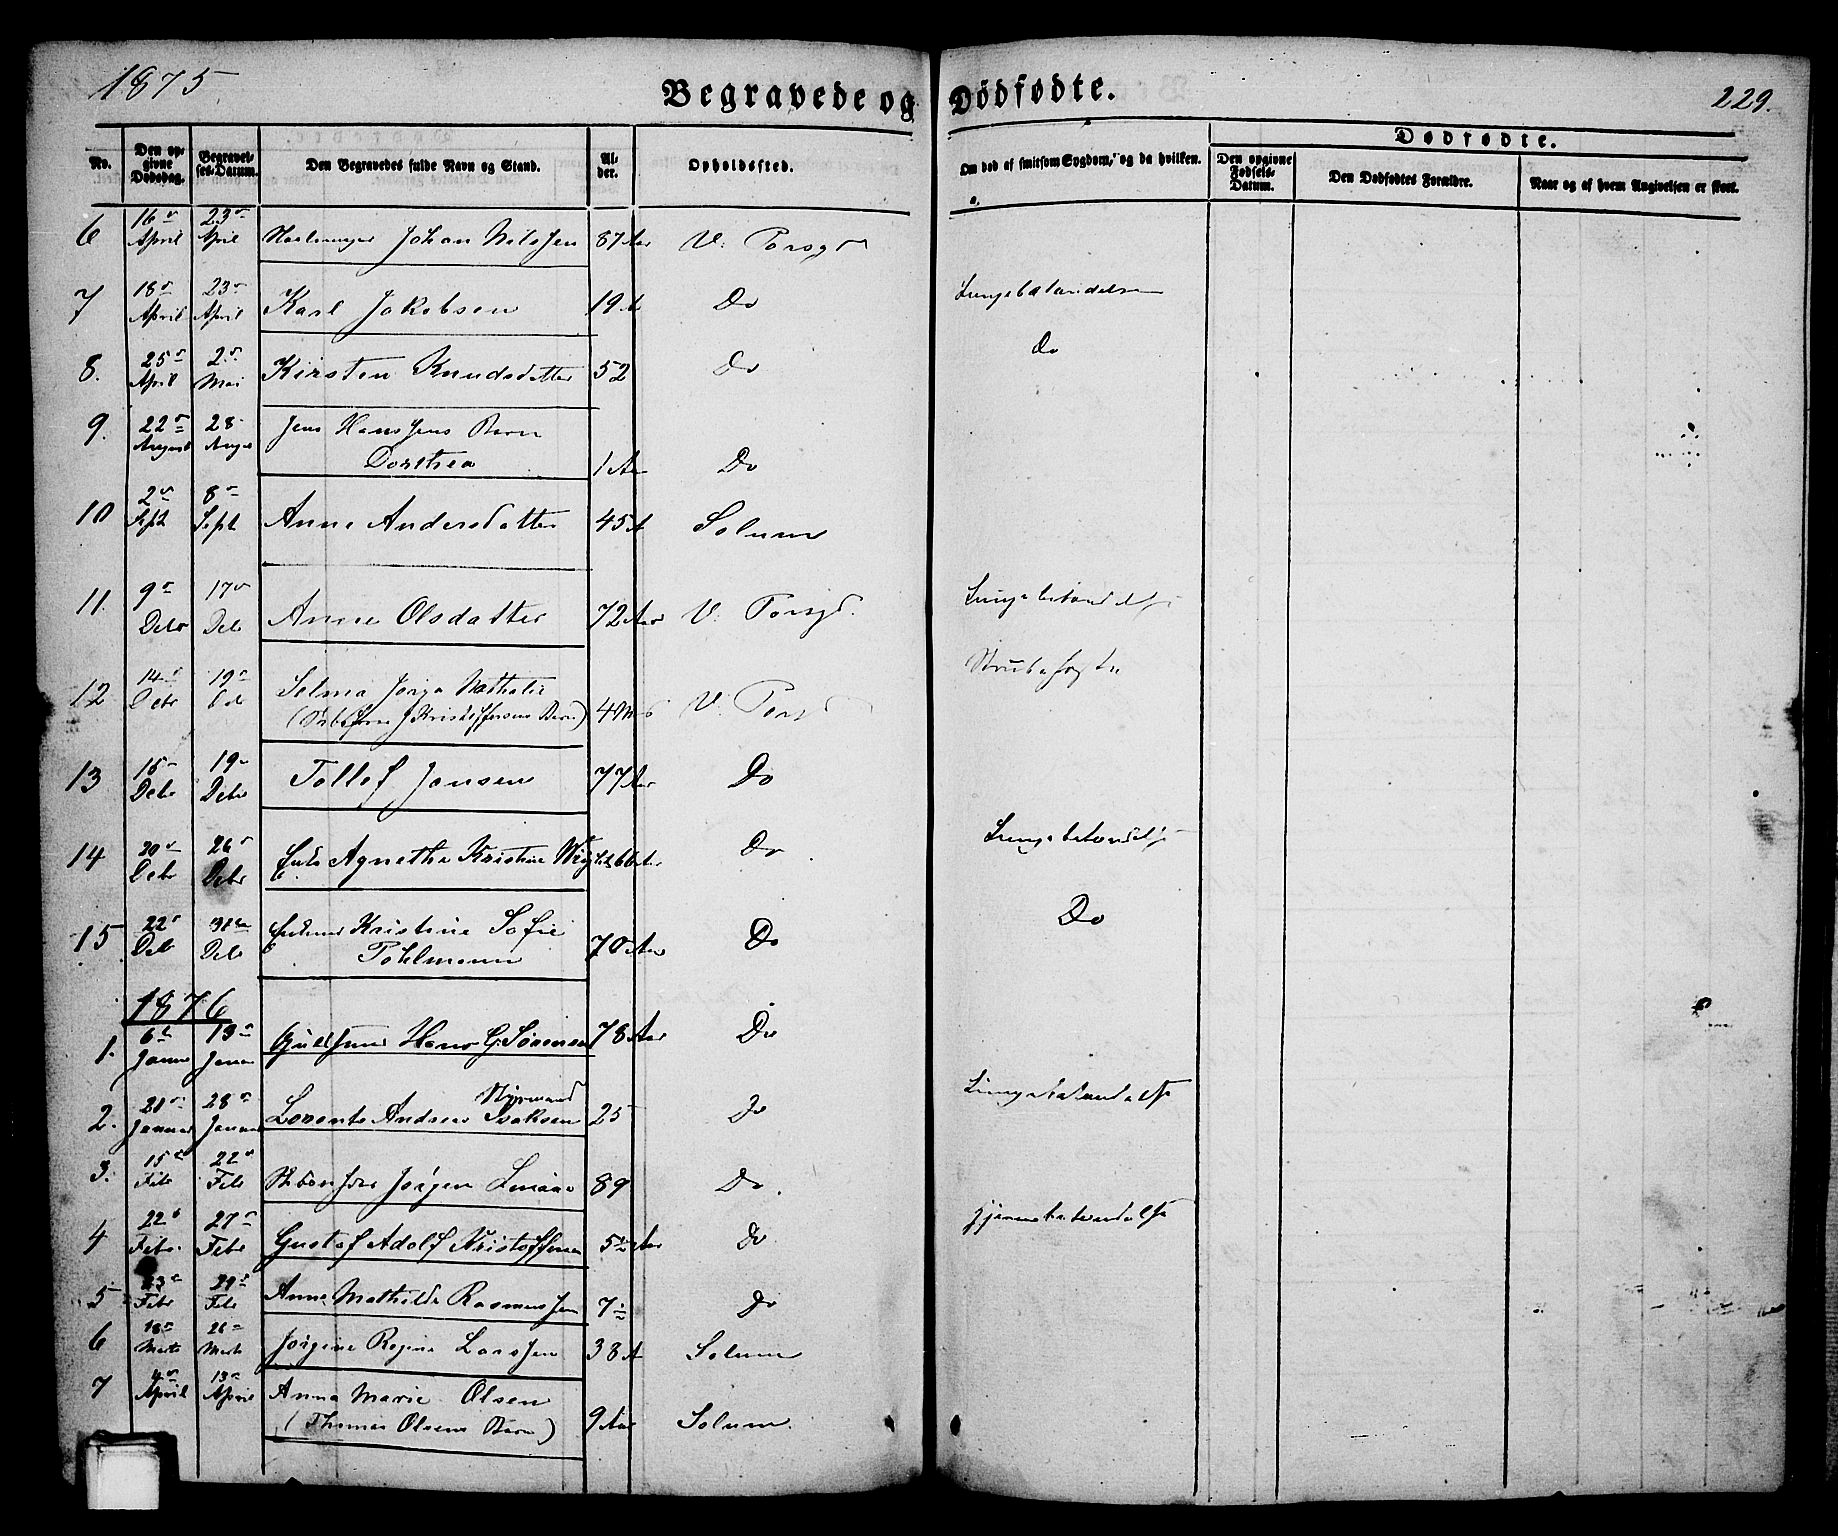 1875
Begravede og Dödfødte.
229.
Dødfødte.
No.
Den op-
givne
Dødsdag.
Begravel-
ses-Datum.
Den Begravedes fulde Navn og Stand.
Al-
der.
Opholdssted.
Om død af smitsom Sygdom, og da hvilken.
Den opgivne
Fødsels-
Datum.
Den Dødfødtes Forældre.
Naar og af hvem Angivelsen er skeet.
6 16 April 23 April Johan Nilssen 87 Aar V. Porsgr
7 18 April 23 April Karl Jakobsen 19 A Do Lungebetændelse
8. 25 April 2 Mai Kirsten Knudsdatter 52 Do Do
9. 22 August 28 Aug Jens Hanssens Barn
Dorthea 1 Aar Do
10 2 Sept 8 Sept Anne Andersdatter 45 A Solum
11. 9 Debr 17 Deb Anne Olsdatter 72 Aar V. Porsgr. Lungebetændelse
12 14 Debr 19 Selma Jørga Mathalie
( Kristoffersens Barn) 4 V. Porsg Strubehoste
13 15 Debr 19 Debr Tollef Jansen 77 Aar Do
14 20 Debr 26 Debr Enke Agnethe Kristine Do Lungebetændelse
15 22 Deb 31 Deb Kristine Sofie
Pohlmann 70 Aar Do Do
1876
1. 6 Janua 13 Janua Guldsmed Hans G. Sørensen 78 Aar Do
Styrmand
2. 21 Januar 28 Januar Lorents Andreas Isaksen 25 Do Lungebetændelse
3. 15 Feb 22 Feb Jørgen 89 Do.
4 22 Febr. 27 Febr Gustaf Adolf Kristoffersen 5½ Aar Do Hjernebetændelse
5 23 Febr 29 Feb Anne Mathilde Rasmussen 7 Do
6 18 Marts 26 Marts Jørgine Regine Larssen 38 A Solum
7 4 April 13 April Anna Marie Olsen
(Thomas Olsens Barn) 9 Aar Solum.